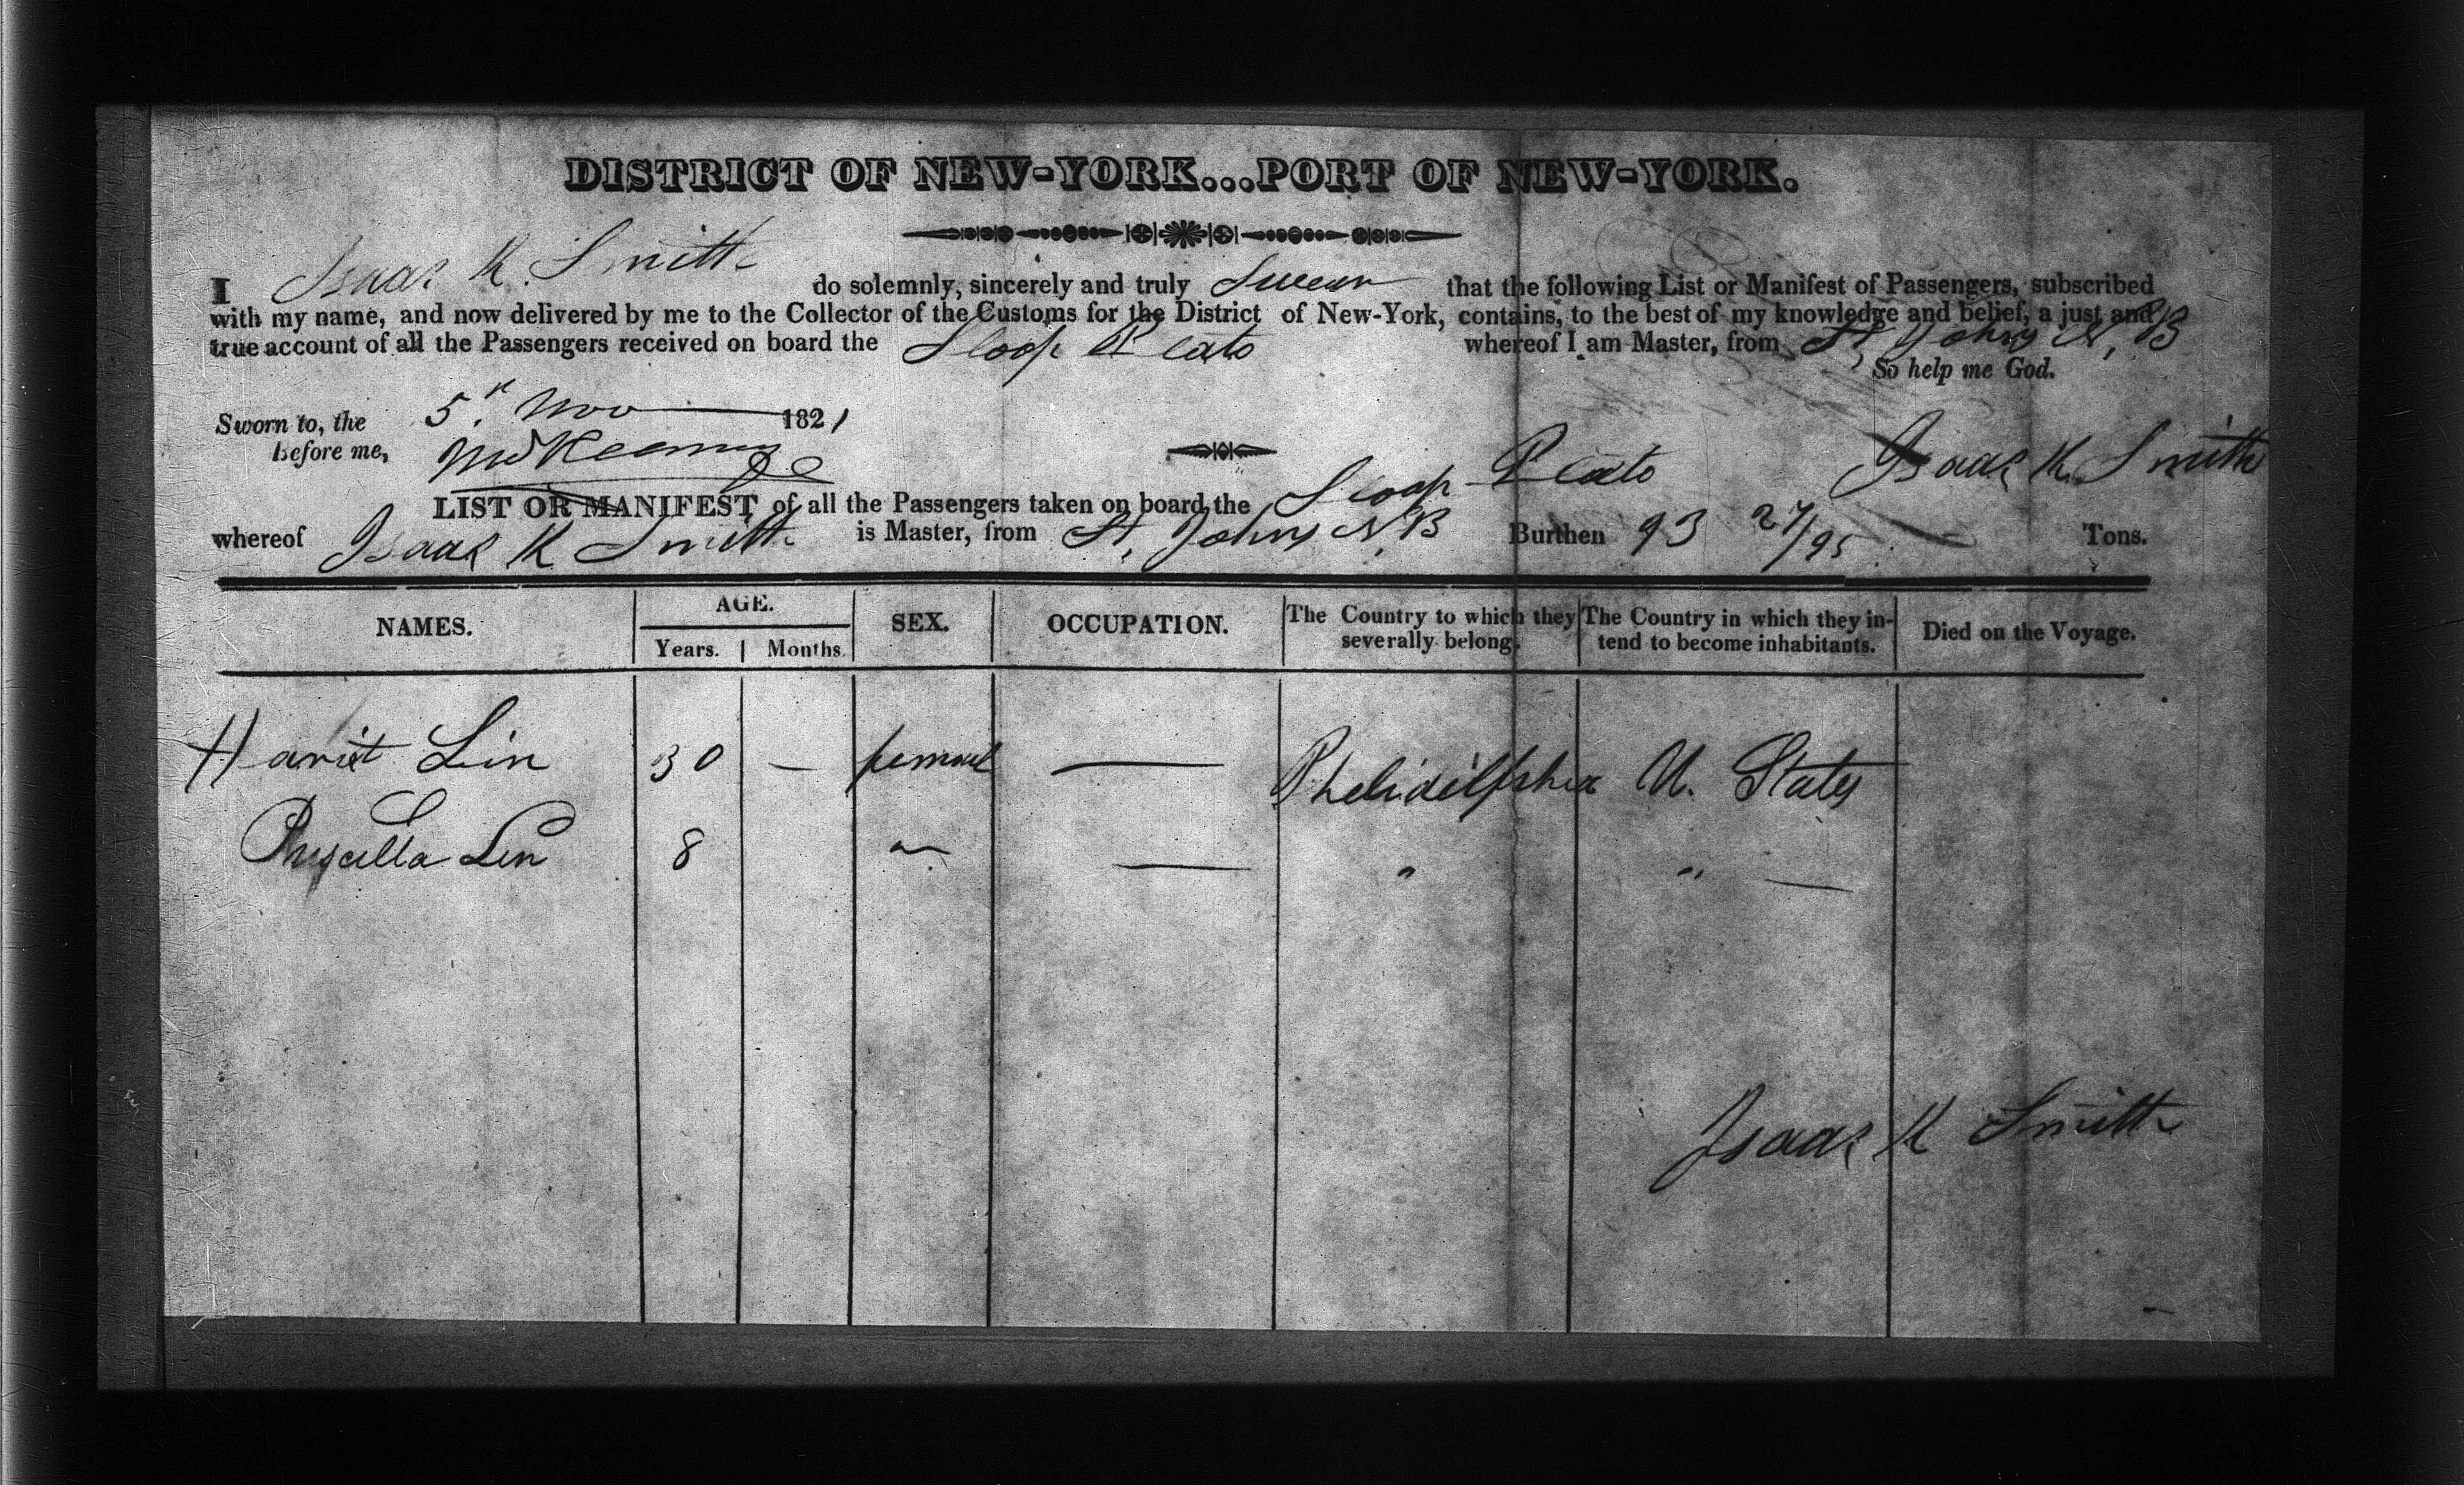 DISTRICT OF NEW-YORK...PORT OF NEW-YORK.
I Isaac K. Smith do solemnly, sincerely and truly Swear that the following List or Manifest of Passengers, subscribed
with my name, and now delivered by me to the Collector of the Customs for the District of New-York, contains, to the best of my knowledge and belief, a just and
true account of all the Passengers received on board the Sloop Plato whereof I am Master, from St Johns N. B
So help me God.
Sworn to, the 5th Nov 1821
Before me,
Isaac K. Smith
LIST OR MANIFEST of all the Passengers taken on board the Sloop Plato
whereof Isaac K Smith is Master, from St. Johns N. B Burthen 93 27/95 Tons.
NAMES. AGE. SEX. OCCUPATION. The Country to which they severally belong. The Country in which they intend to become inhabitants. Died on the Voyage.
Years. Months.
Harit Lin 30 — femael — Phelidelphia U. States
Pryscilla Lin 8 " — " " —
Isaac K Smith